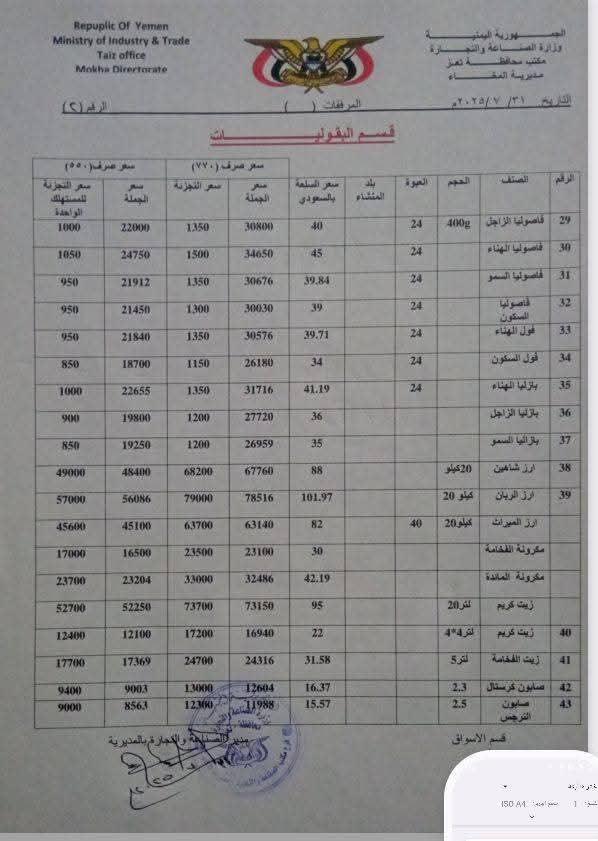 Republic Of Yemen
Ministry of Industry & Trade
Taiz office
Mokha Directorate
الجمهورية اليمنية
وزارة الصناعة والتجارة
مكتب محافظة تعز
مديرية المخاء
التاريخ ٣١/ ٧ /٢٠٢٥م المرفقات ( ) الرقم (٢)
قسم البقوليات
سعر صرف (٧٧٠) سعر صرف (٥٥٠)
الرقم الصنف الحجم العبوة بلد المنشاء سعر السلعة بالسعودي سعر الجملة سعر التجزئة سعر الجملة سعر التجزئة للمستهلك الواحدة
29 فاصوليا الزاجل 400g 24 40 30800 1350 22000 1000
30 فاصوليا الهناء 24 45 34650 1500 24750 1050
31 فاصوليا السمو 24 39.84 30676 1350 21912 950
32 فاصوليا السكون 24 39 30030 1300 21450 950
33 فول الهناء 24 39.71 30576 1350 21840 950
34 فول السكون 24 34 26180 1150 18700 850
35 بازليا الهناء 24 41.19 31716 1350 22655 1000
36 بازليا الزاجل 36 27720 1200 19800 900
37 بازاليا السمو 35 26959 1200 19250 850
38 ارز شاهين 20كيلو 88 67760 68200 48400 49000
39 ارز الربان كيلو 20 101.97 78516 79000 56086 57000
ارز الميراث كيلو20 40 82 63140 63700 45100 45600
مكرونة الفخامة 30 23100 23500 16500 17000
مكرونة المائدة 42.19 32486 33000 23204 23700
زيت كريم لتر20 95 73150 73700 52250 52700
40 زيت كريم لتر4*4 22 16940 17200 12100 12400
41 زيت الفخامة لتر5 31.58 24316 24700 17369 17700
42 صابون كرستال 2.3 16.37 12604 13000 9003 9400
43 صابون النرجس 2.5 15.57 11988 12300 8563 9000
قسم الاسواق
مدير الصناعة والتجارة بالمديرية
ISO A4